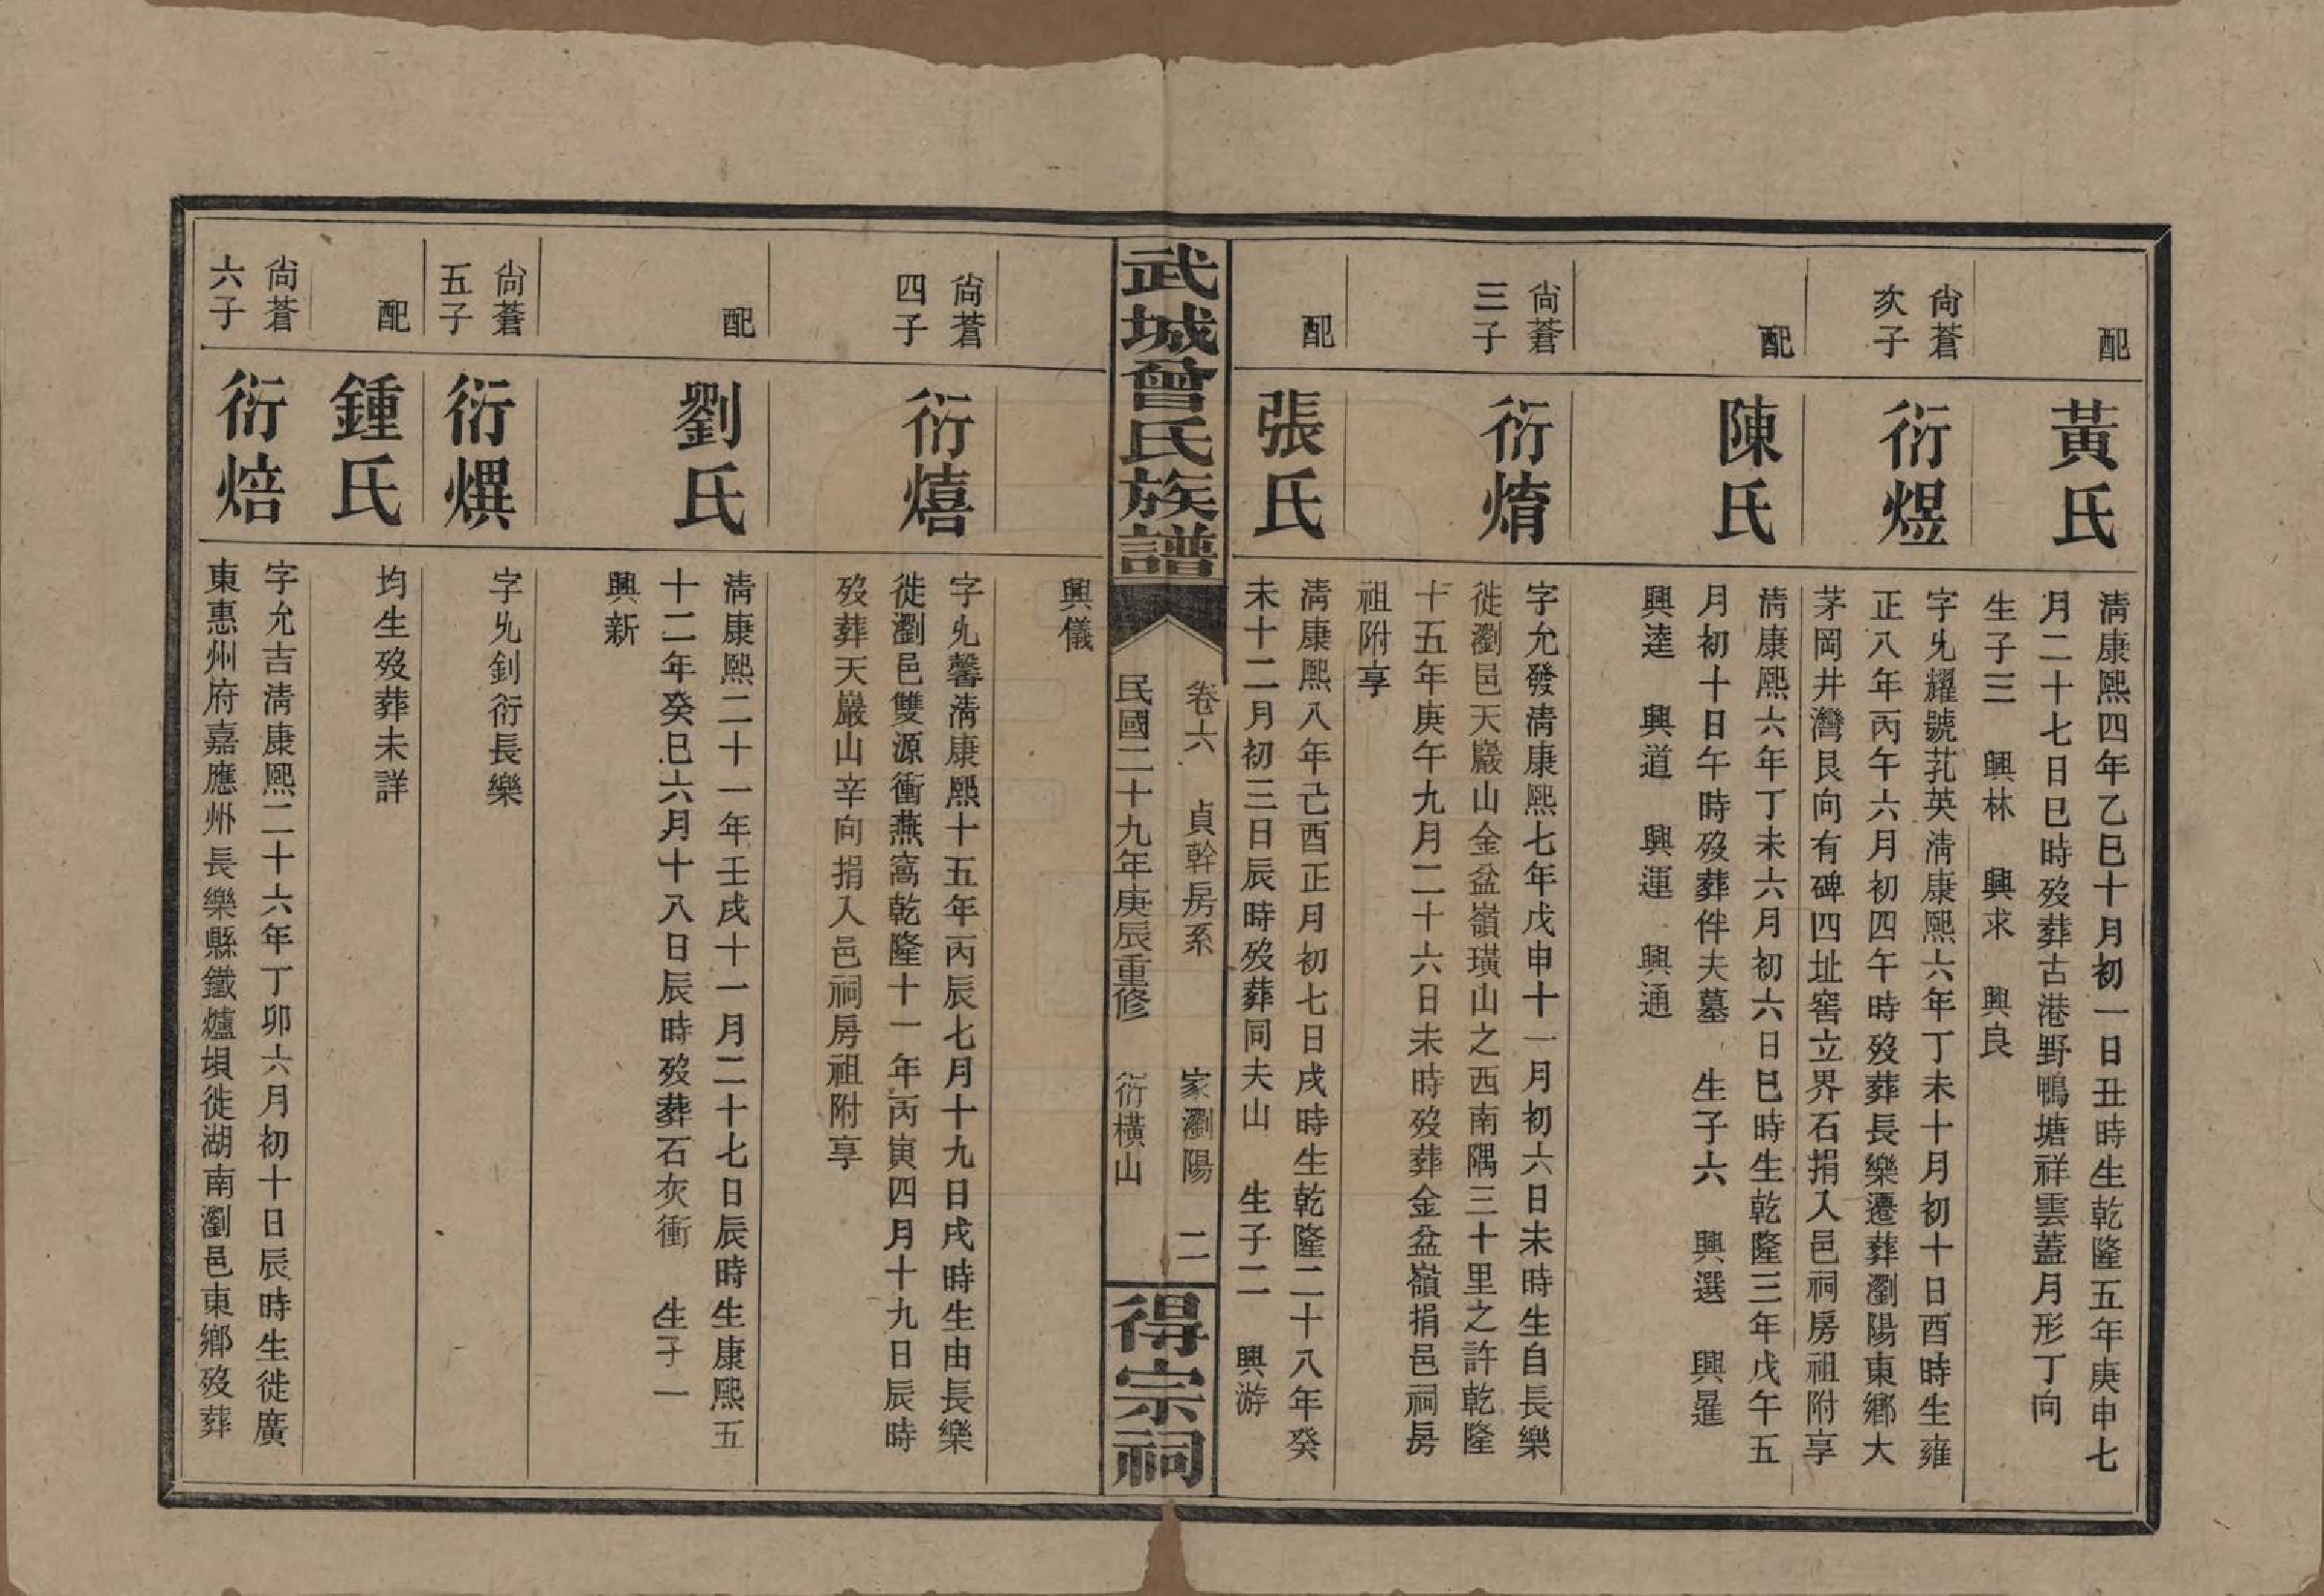 配
黃氏
淸康熙四年乙巳十月初一日丑時生乾隆五年庚申七
月二十七日巳時歿葬古港野鴨塘祥雲蓋月形丁向
生子三 興林 興求 興良
尙蒼
次子
衍煜
字允耀號芤英淸康熙六年丁未十月初十日酉時生雍
正八年丙午六月初四午時歿葬長樂遷葬瀏陽東鄉大
茅岡井灣艮向有碑四址窖立界石捐入邑祠房祖附享
配
陳氏
淸康熙六年丁未六月初六日巳時生乾隆三年戊午五
月初十日午時歿葬伴夫墓 生子六 興選 興暹
興逵 興道 興運 興通
尙蒼
三子
衍焴
字允發淸康熙七年戊申十一月初六日未時生自長樂
徙瀏邑天巖山金盆嶺璜山之西南隅三十里之許乾隆
十五年庚午九月二十六日未時歿葬金盆嶺捐邑祠房
祖附享
配
張氏
淸康熙八年己酉正月初七日戌時生乾隆二十八年癸
未十二月初三日辰時歿葬同夫山 生子二 興游
武城曾氏族譜
卷六 貞幹房系 家瀏陽 二
民國二十九年庚辰重修 衍橫山
得宗祠
興儀
尙蒼
四子
衍熺
字允馨淸康熙十五年丙辰七月十九日戌時生由長樂
徙瀏邑雙源衝燕窩乾隆十一年丙寅四月十九日辰時
歿葬天巖山辛向捐入邑祠房祖附享
配
劉氏
淸康熙二十一年壬戌十一月二十七日辰時生康熙五
十二年癸巳六月十八日辰時歿葬石灰衝 生子一
興新
尙蒼
五子
衍熼
字允釗衍長樂
配
鍾氏
均生歿葬未詳
尙蒼
六子
衍焙
字允吉淸康熙二十六年丁卯六月初十日辰時生徙廣
東惠州府嘉應州長樂縣鐵爐垻徙湖南瀏邑東鄉歿葬